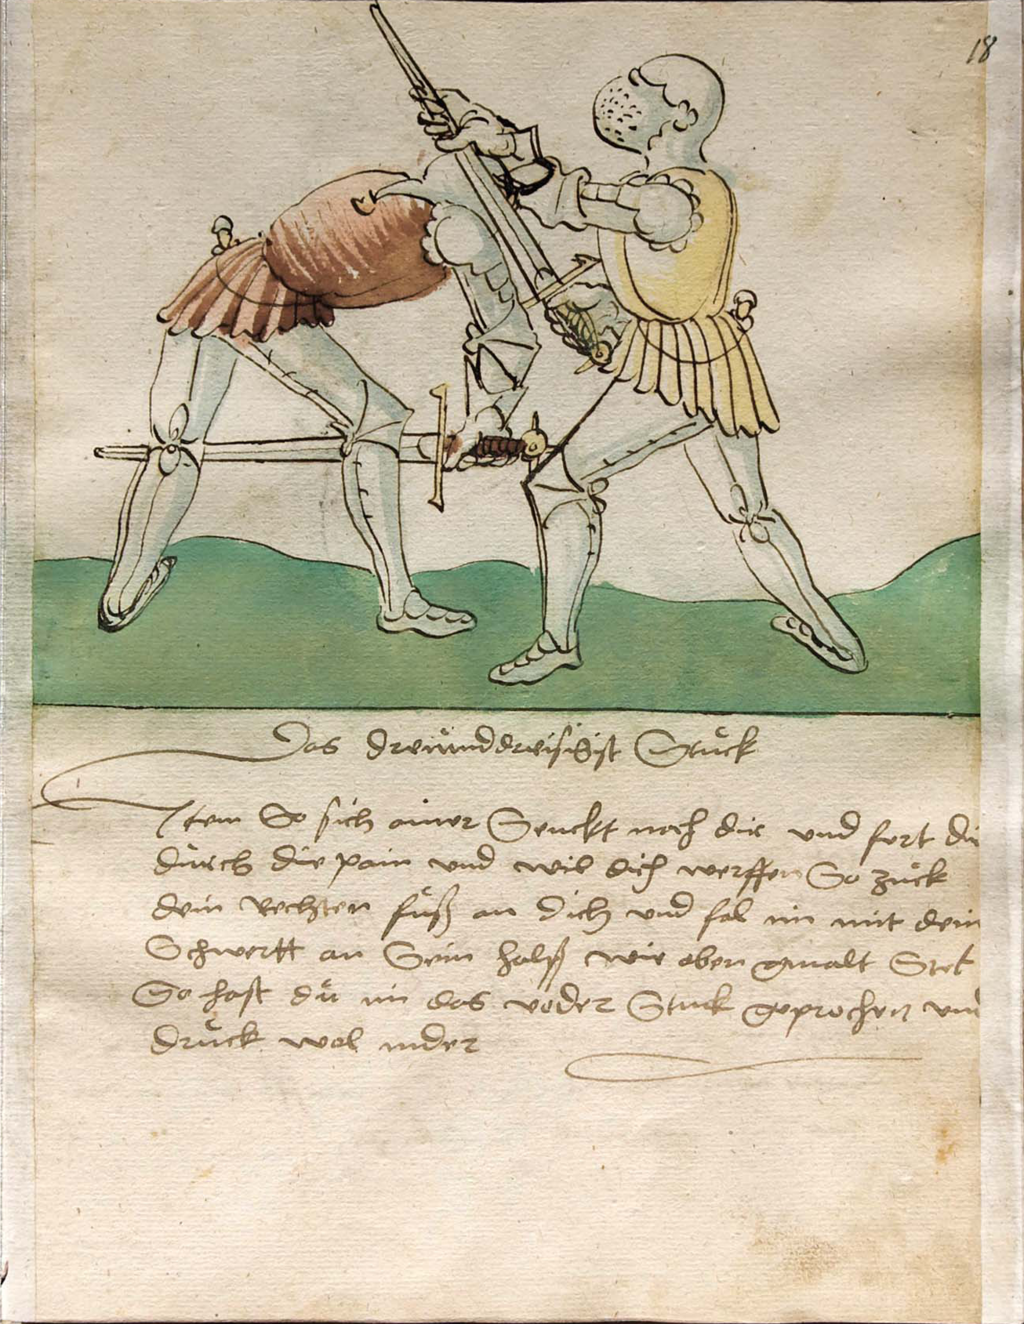 18
Das dreuünddreisigist Stuck
Item So sich ainer Senckt nach dir und fert dir
dürch die pain und wil dich werffen So zuck
dein rechten fuß an dich und fal im mit dein
Schwertt an Sein halß wie oben gmalt Stet
So hast dü im das voder Stuck geprochen und
drück wol nider